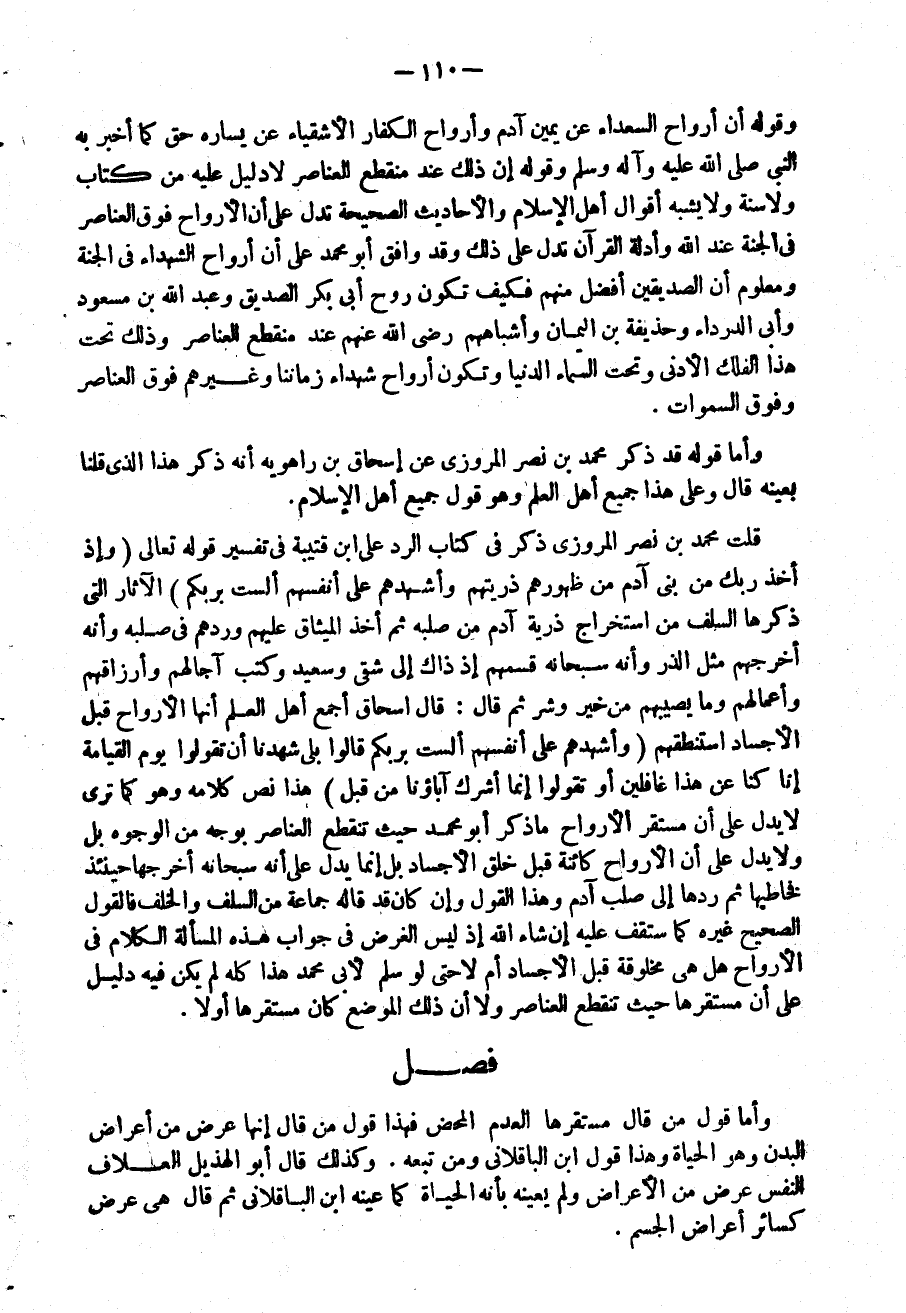 — ١١٠ —
وقوله أن أرواح السعداء عن يمين آدم وأرواح الكفار الأشقياء عن يساره حق كما أخبر به
النبي صلى الله عليه وآله وسلم وقوله إن ذلك عند منقطع العناصر لادليل عليه من كتاب
ولاسنة ولايشبه أقوال أهل الإسلام والأحاديث الصحيحة تدل على أن الأرواح فوق العناصر
فى الجنة عند الله وأدلة القرآن تدل على ذلك وقد وافق أبو محمد على أن أرواح الشهداء فى الجنة
ومعلوم أن الصديقين أفضل منهم فكيف تكون روح أبى بكر الصديق وعبد الله بن مسعود
وأبى الدرداء وحذيفة بن اليمان وأشباههم رضى الله عنهم عند منقطع العناصر وذلك تحت
هذا الفلك الأدنى وتحت السماء الدنيا وتكون أرواح شهداء زماننا وغيرهم فوق العناصر
وفوق السموات .
وأما قوله قد ذكر محمد بن نصر المروزى عن إسحاق بن راهويه أنه ذكر هذا الذى قلنا
بعينه قال وعلى هذا جميع أهل العلم وهو قول جميع أهل الإسلام.
قلت محمد بن نصر المروزى ذكر فى كتاب الرد على ابن قتيبة فى تفسير قوله تعالى ( وإذ
أخذ ربك من بنى آدم من ظهورهم ذريتهم وأشهدهم على أنفسهم ألست بربكم ) الآثار التى
ذكرها السلف من استخراج ذرية آدم من صلبه ثم أخذ الميثاق عليهم وردهم فى صلبه وأنه
أخرجهم مثل الذر وأنه سبحانه قسمهم إذ ذاك إلى شقى وسعيد وكتب آجالهم وأرزاقهم
وأعمالهم وما يصيبهم من خير وشر ثم قال : قال اسحاق أجمع أهل العلم أنها الأرواح قبل
الأجساد استنطقهم ( وأشهدهم على أنفسهم ألست بربكم قالوا بلى شهدنا أن تقولوا يوم القيامة
إنا كنا عن هذا غافلين أو تقولوا إنما أشرك آباؤنا من قبل ) هذا نص كلامه وهو كما ترى
لايدل على أن مستقر الأرواح ماذكر أبو محمد حيث تنقطع العناصر بوجه من الوجوه بل
ولايدل على أن الأرواح كائنة قبل خلق الأجساد بل إنما يدل على أنه سبحانه أخرجها حينئذ
فخاطبها ثم ردها إلى صلب آدم وهذا القول وإن كان قد قاله جماعة من السلف والخلف فالقول
الصحيح غيره كما ستقف عليه إن شاء الله إذ ليس الغرض فى جواب هذه المسألة الكلام فى
الأرواح هل هى مخلوقة قبل الأجساد أم لاحتى لو سلم لأبى محمد هذا كله لم يكن فيه دليل
على أن مستقرها حيث تنقطع العناصر ولا أن ذلك الموضع كان مستقرها أولا .
فصل
وأما قول من قال مستقرها العدم المحض فهذا قول من قال إنها عرض من أعراض
البدن وهو الحياة وهذا قول ابن الباقلانى ومن تبعه . وكذلك قال أبو الهذيل العلاف
النفس عرض من الأعراض ولم يعينه بأنه الحياة كما عينه ابن الباقلانى ثم قال هى عرض
كسائر أعراض الجسم .